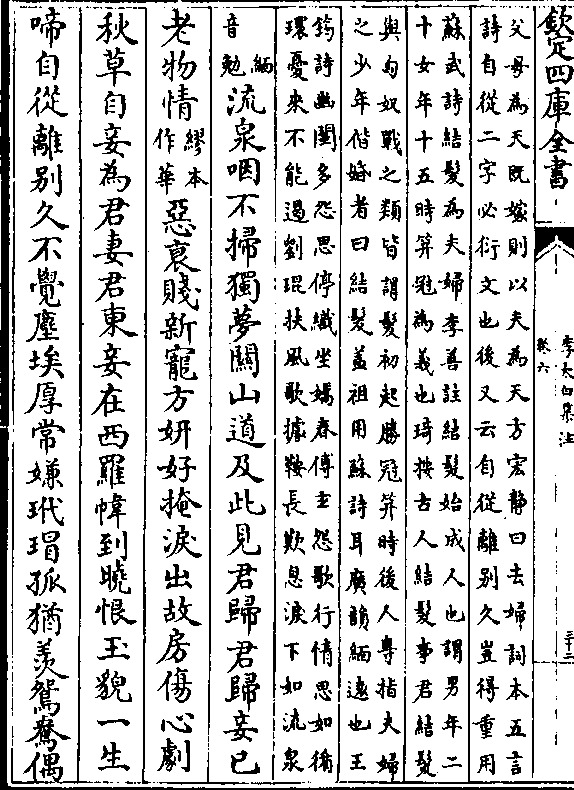 欽定四庫全書
李太白集注
卷六
三十二
父母為天既嫁則以夫為天方宏静曰去婦詞本五言
詩自從二字必衍文也後又云自從離别久豈得重用
蘇武詩結髪為夫婦李善註結髪始成人也謂男年二
十女年十五時筓冠為義也琦按古人結髪事君結髪
與匈奴戰之類皆謂髪初起勝冠筓時後人專指夫婦
之少年偕婚者曰結髪蓋祖用蘇詩耳廣韻緬逺也王
鍔詩幽閨多怨思停織坐嬌春傅玄怨歌行情思如循
環憂來不能遏劉琨扶風歌據鞍長歎息淚下如流泉
緬音勉流泉咽不掃獨夢關山道及此見君歸君歸妾已
老物情繆本作華惡衰賤新寵方妍好掩淚出故房傷心劇
秋草自妾為君妻君東妾在西羅幃到曉恨玉貌一生
啼自從離别久不覺塵埃厚常嫌玳瑁孤猶羨鴛鴦偶